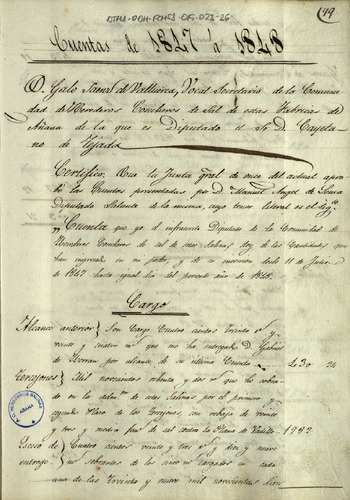 ATHA-DOH-FCHSA-OF-021-26
(49
Cuentas de 1847 á 1848
D. Galo Saenz de Valluerca, Vocal Secretario de la Comuni
dad de Herederos Condueños de Sal de estas Fabricas de
Añana de la que es Diputado el Sr. D. Cayeta
no de Tejada
Certifico: Que la Junta gral de once del actual apro
bó las Cuentas presentadas por D. Manuel Angel de
Diputado Saliente de la misma, cuyo tenor literal es el
"Cuenta que yo el infrascrito Diputado de la Comunidad de
Herederos Condueños de sal de estas Salinas doy de las Cantidades que
han ingresado en mi poder, y de su inversion desde 11 de Julio
de 1847 hasta igual dia del presente año de 1848.
Cargo
Alcance anterior } Son Cargo Cuatro cientos treinta r. y
veinte y cuatro m. que me ha entregado D. Gabriel
de Herran por alcance de su ultima Cuenta 430 24
Torrejones } Mil novecientos ochenta, y dos r. que ha cobra
do en la de estas Salinas por el primero y
segundo Plazo de los Torrejones, con rebaja de veinte
y tres y media de sal contra la Plana de 1982
Esceso de } Cuatro cientos veinte y tres r. y diez y mars
entrega } sobrantes de las cinco cargadas en cada
una de las treinta y nueve mil novecientas diez